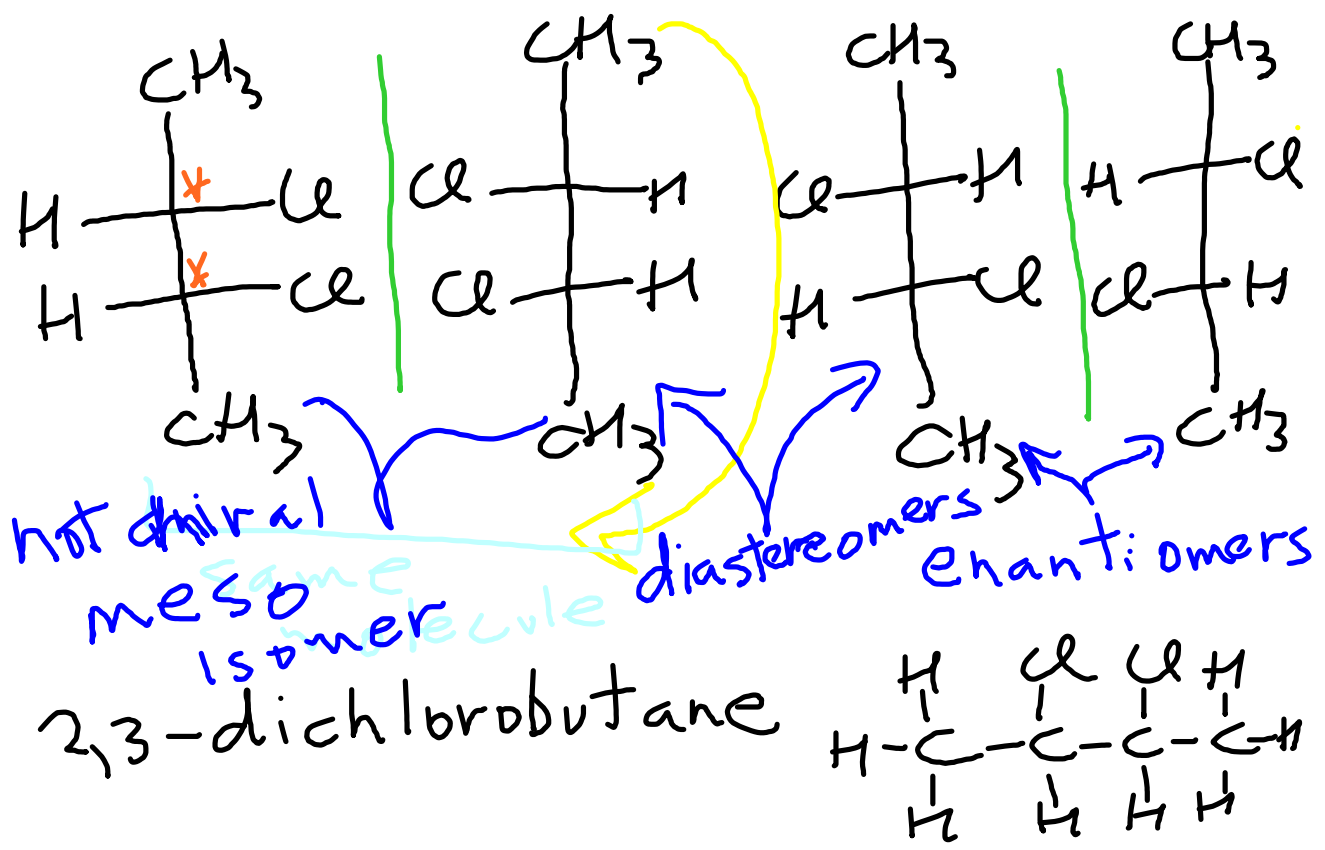 CH3 CH3 CH3 CH3
H Cl Cl H Cl H H Cl
H Cl Cl H H Cl Cl H
CH3 CH3 CH3 CH3
not chiral
same
meso
molecule
isomer
diastereomers
enantiomers
2,3-dichlorobutane
H Cl Cl H
H-C-C-C-C-H
H H H H